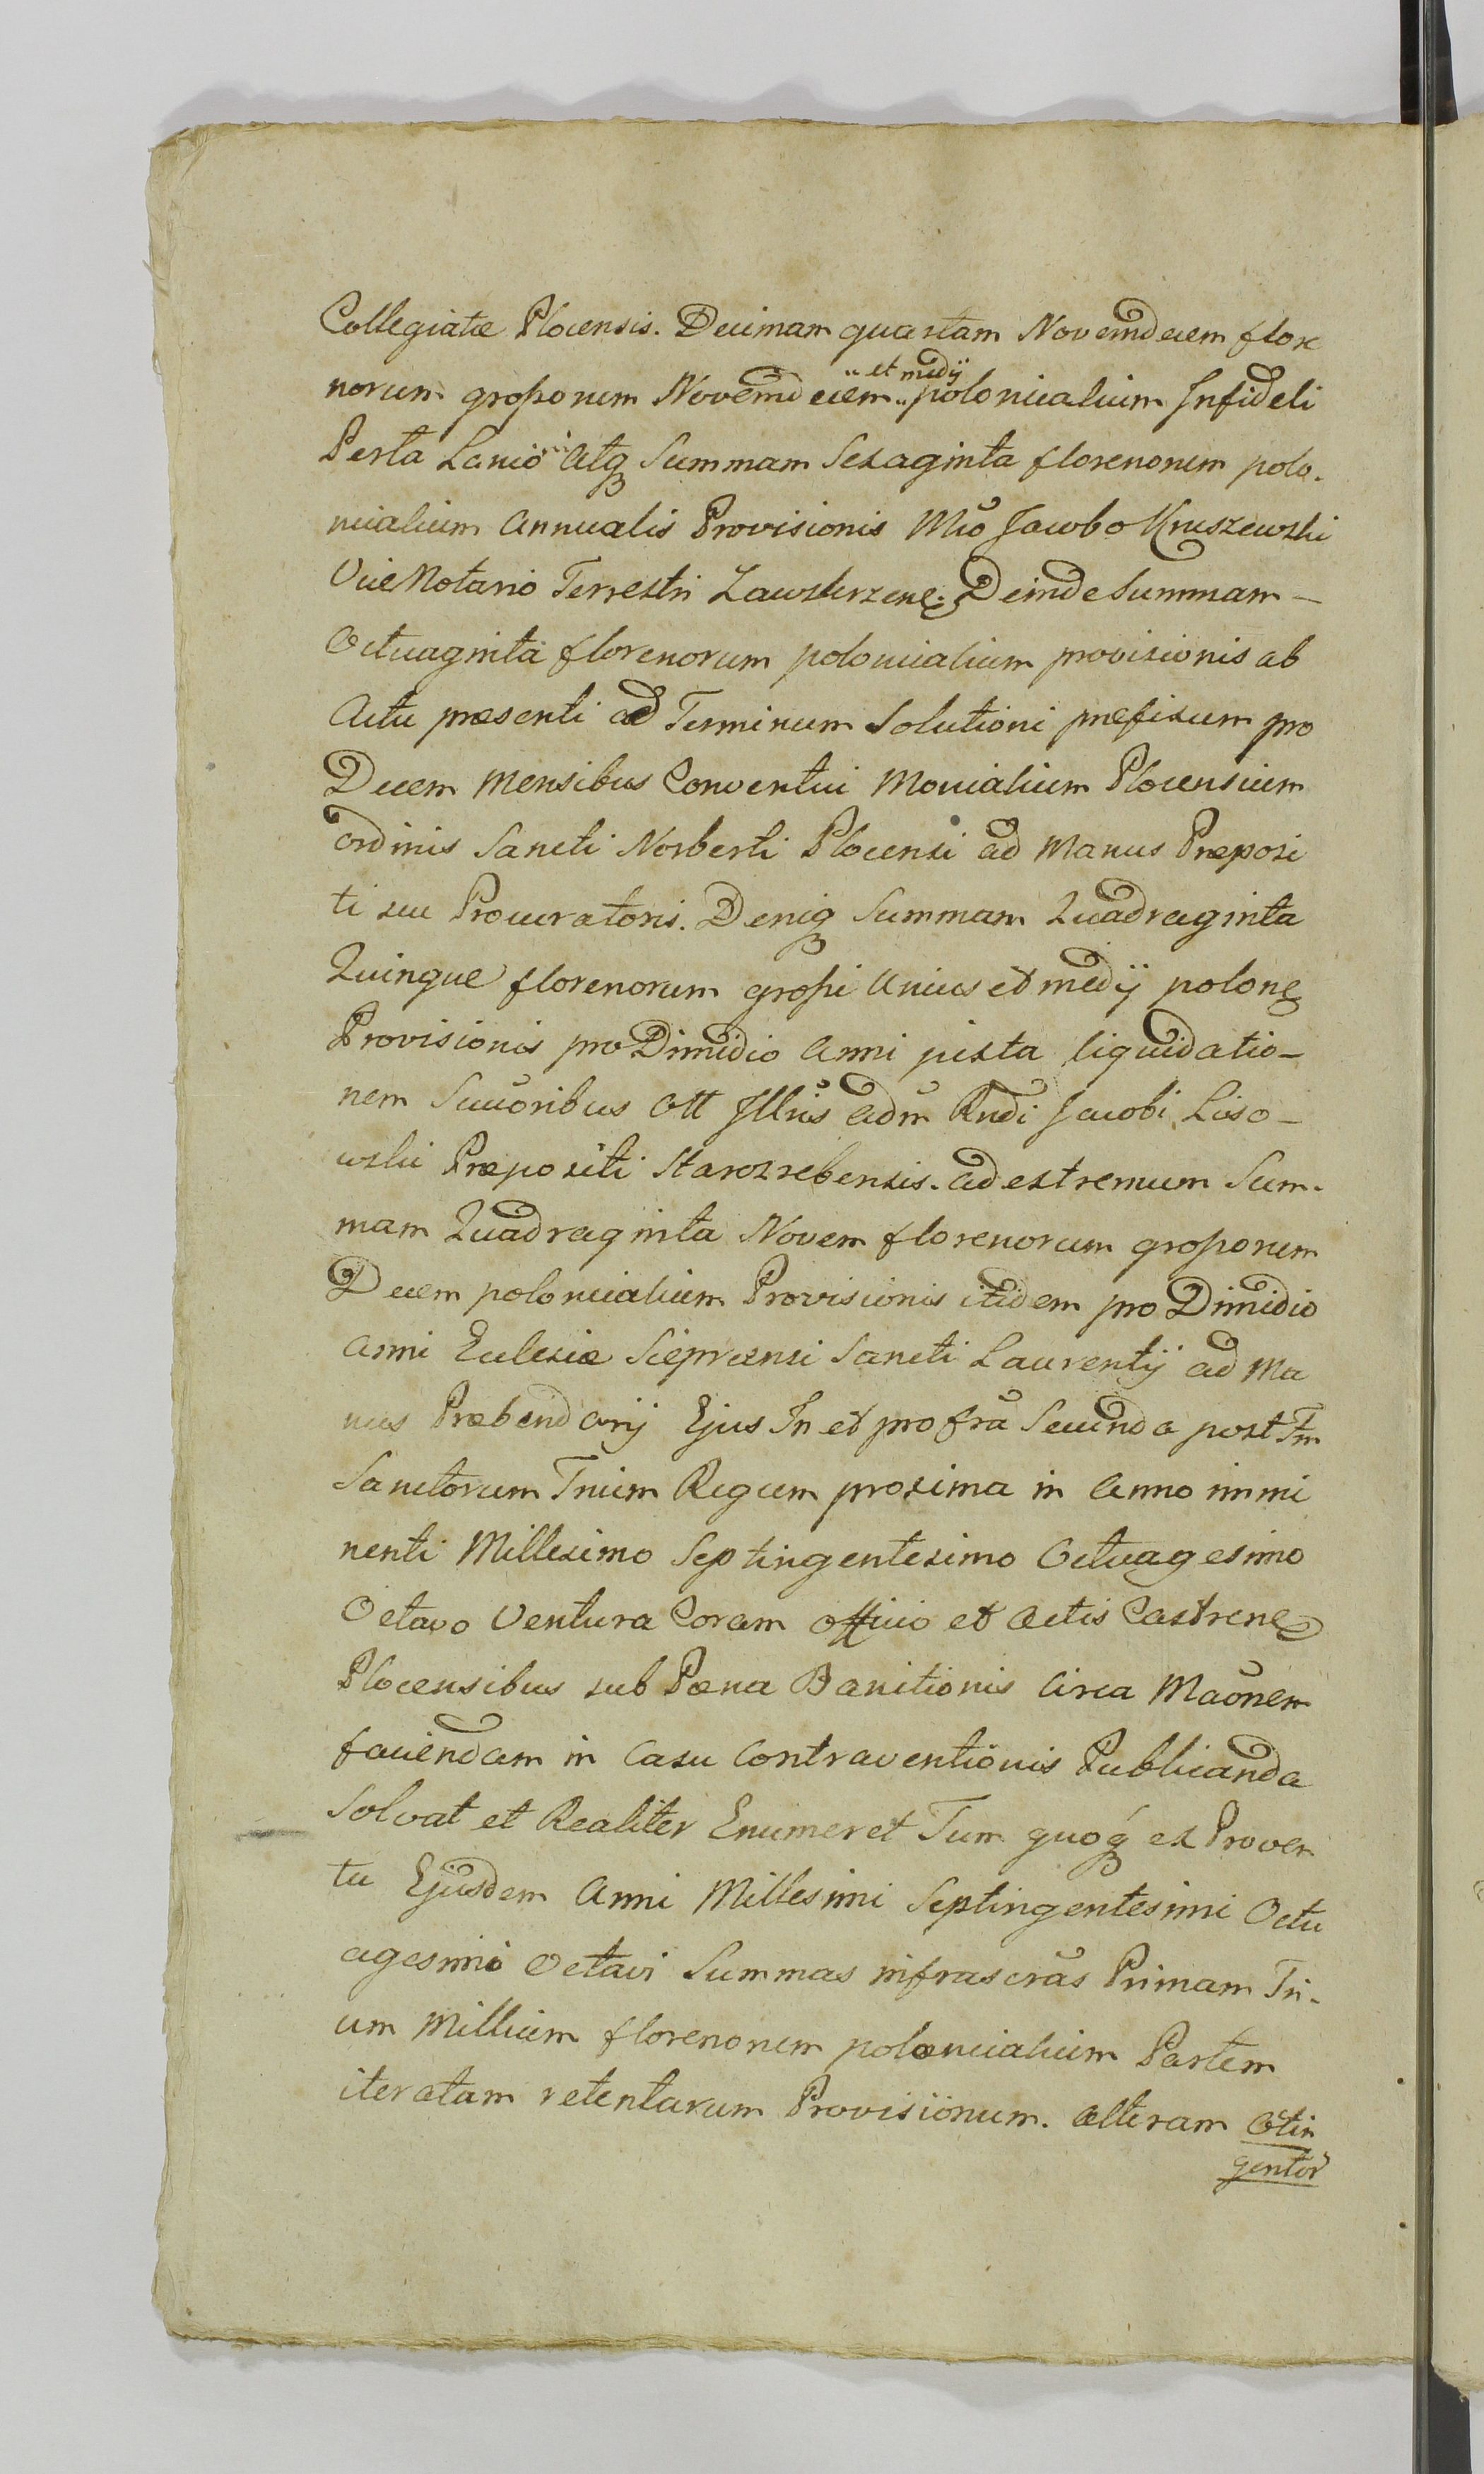 Collegiatæ Plocensis. Decimam quartam Novemdecem flore
norum grossorum Novemdecem „et medij„ polonicalium Infideli
Perla Lanio Atq Summam Sexaginta florenorum polo-
nicalium Annualis Provisionis Mco Jacobo Kruszewski
Vice Notario Terrestri Zawskrzene. Deinde Summam —
Octuaginta florenorum polonicalium provisionis ab
Actu præsenti ad Terminum Solutioni præfixum pro
Decem Mensibus Conventui Monialium Plocensium
ordinis Sancti Norberti Plocensi ad Manus Præposi
ti seu Procuratoris. Deniq Summam Quadraginta
Quinque florenorum grossi Unius et medij polone
Provisionis pro Dimidio Anni juxta liquidatio-
nem Succoribus Olt Illris adm Rndi Jacobi Liso-
wski Præpositi Starozrebensis. ad extremum Sum-
mam Quadraginta Novem florenorum grossorum
Decem polonicalium Provisionis itidem pro Dimidio
Anni Ecclesiæ Sieprcensi Sancti Laurentij ad Ma
nus Præbendarij Ejus In et pro fra Secunda post Fm
Sanctorum Trium Regum proxima in Anno immi
nenti Millesimo Septingentesimo Octuagesimo
Octavo Ventura Coram officio et Actis Castrene
Plocensibus sub Pæna Banitionis Circa Maonem
faciendam in Casu Contraventionis Publicanda
Solvat et Realiter Enumeret Tum quoq ex Proven
tu Ejusdem Anni Millesimi Septingentesimi Octu
agesimi Octavi Summas infrascras Primam Tri-
um Millium florenorum polonicalium Partem
iteratam retentarum Provisionum. Alteram Octin
gentor